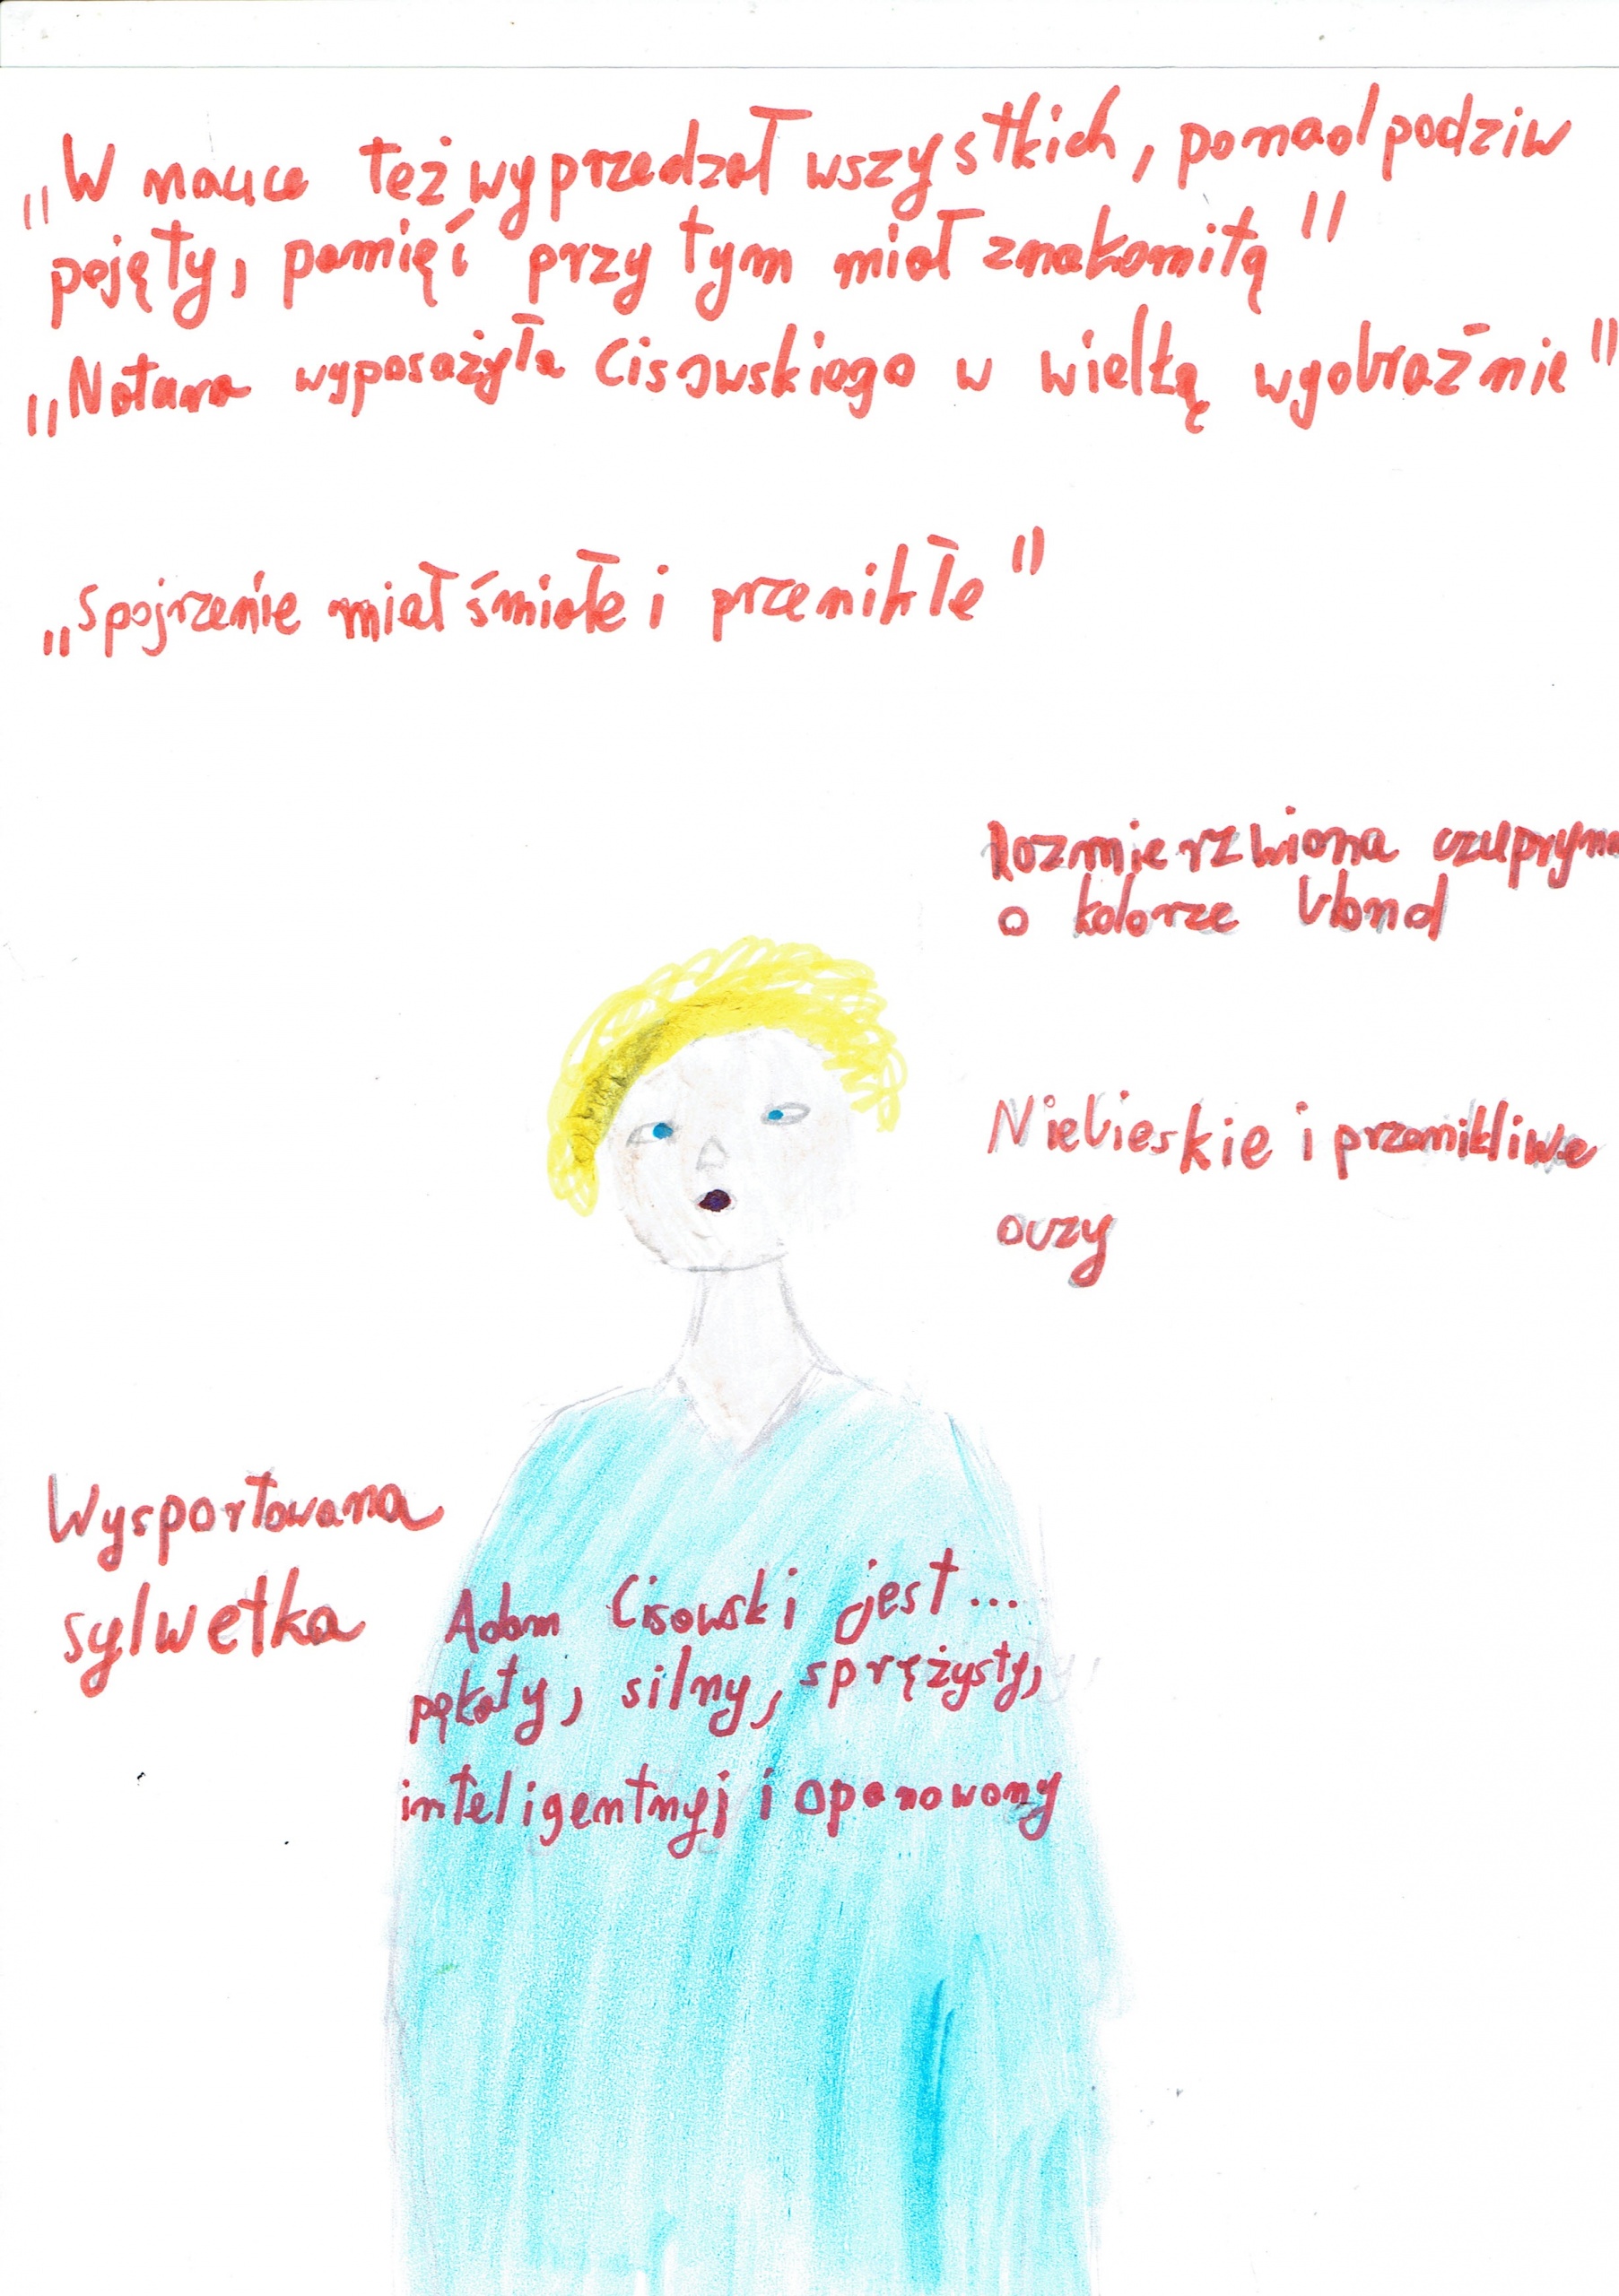 „W nauce też wyprzedzał wszystkich, ponad podziw
pojęty, pamięć przy tym miał znakomitą"
„Natura wyposażyła Cisowskiego w wielką wyobraźnie"
„Spojrzenie miał śmiałe i przenikłe"
Rozmierzwiona czupryna
o kolorze blond
Niebieskie i przenikliwe
oczy
Wysportowana
sylwetka
Adam Cisowski jest...
pękaty, silny, sprężysty,
inteligentnyj i opanowany